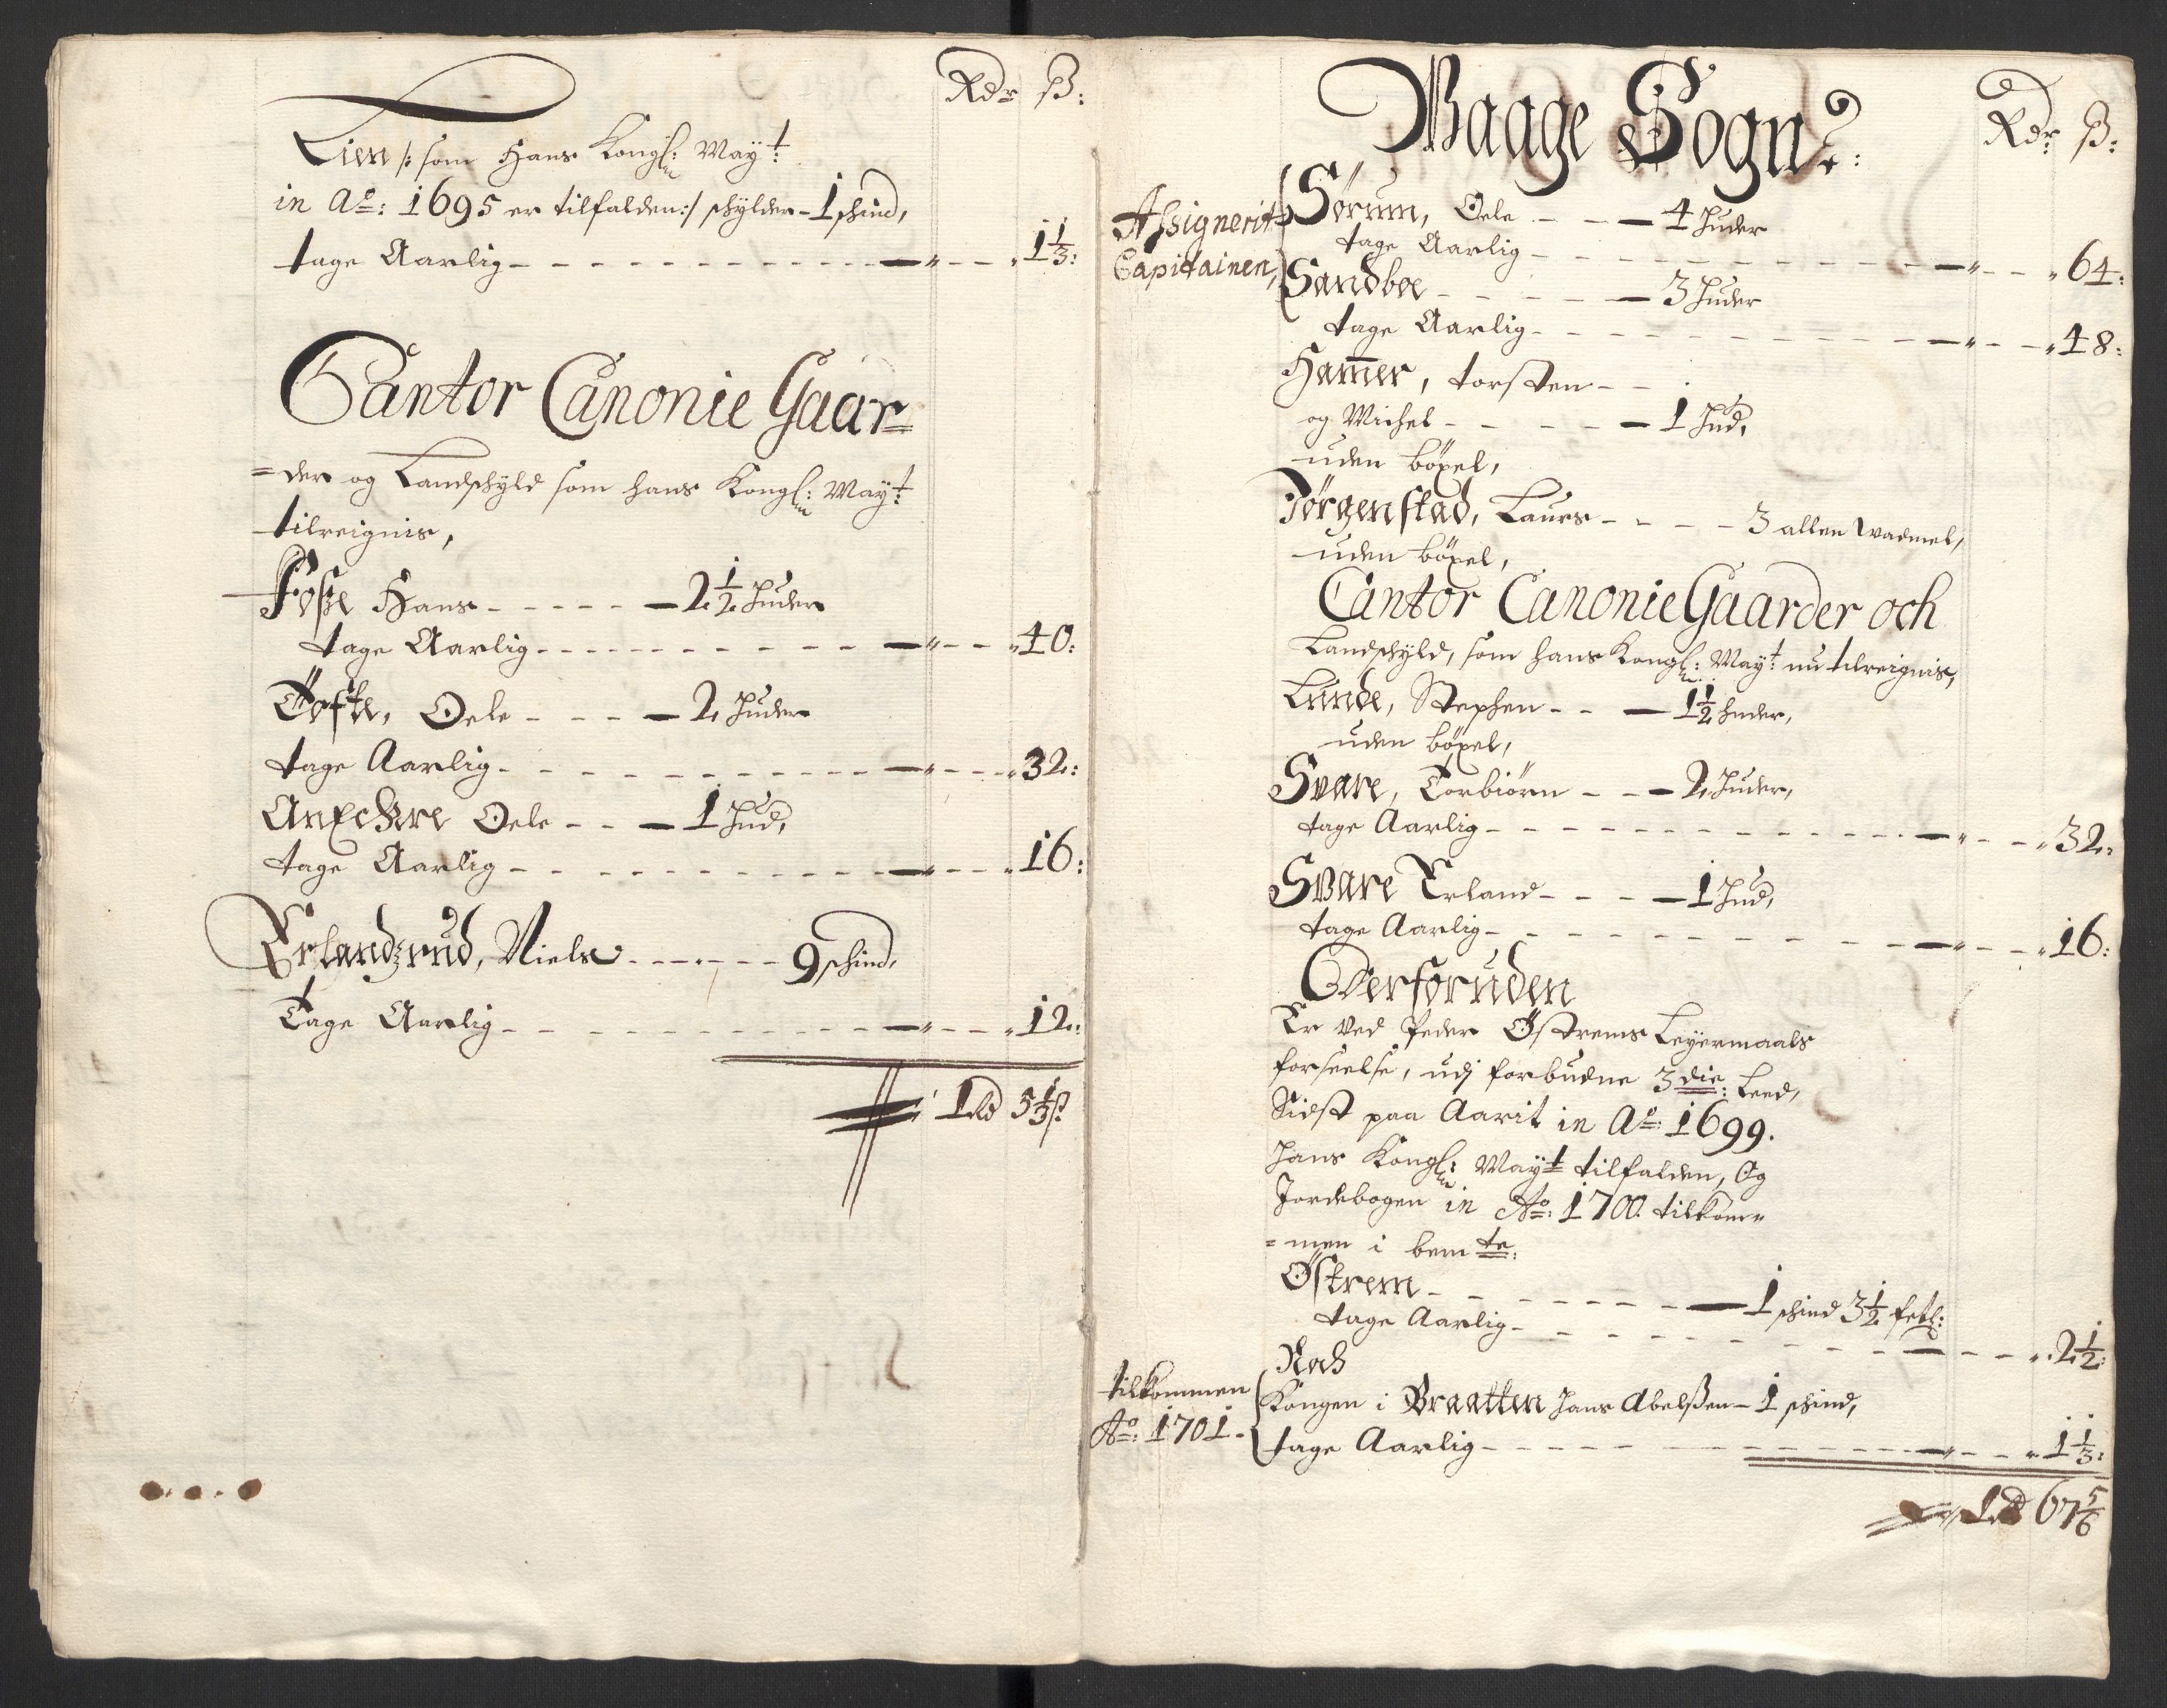 Rdr ß:
Lien /: som Hans Kongl: Mayt:
in Ao: 1695 er tilfalden :/ schylder - 1 schind,
tage Aarlig - - - - " - - " 1 1/3:
Cantor Canonie Gaar=
=der og Landschyld som hans Kongl: Mayt:
tilreignis,
Foße Hans - - - - 2 1/2 huder
tage Aarlig - - - - " - - " 40:
Tofte, Oele - - - 2 huder
tage Aarlig - - - - " - - " 32:
Oele - - - 1 hud,
tage Aarlig - - - - " - - " 16:
Erlandzrud, Niels - - - - 9 schind,
Tage Aarlig - - - - " - - " 12:
1 Rd 5 1/3 ß
Waage Sogn:
Rdr: ß:
Assignerit
Capitainen,
Sørum, Oele - - - 4 huder
tage Aarlig - - - - " - - " 64:
Sandboe - - - - 3 huder
tage Aarlig - - - - " - - " 48:
Ham̄er, torsten - -
og Michel - - - - 1 hud,
uden böxel,
Jörgenstad, Laurs - - - - 3 allen wadmel,
uden böxel,
Cantor Canonie Gaarder och
Landschyld, som hans Kongl: Mayt: nu tilreignis,
Lunde, Stephen - - - 1 1/2 huder,
uden böxel,
Svare, Torbiörn - - - 2 huder,
tage Aarlig - - - - " - - " 32:
Svare Erland - - - 1 hud,
tage Aarlig - - - - " - - " 16:
Offerforuden
Er ved Peder Östrems Leyermaals
forseelse, udj forbudne 3die: Leed,
Sidst paa Aarit in Ao: 1699.
hans Kongl: Mayt tilfalden, Og
Jordebogen in Ao: 1700. tilkom=
=men i bemte:
Östrem - - - - 1 schind 3 1/2 fetl:
tage Aarlig - - - - " - - " 2 1/2:
Noch
tilkommen
Ao: 1701.
Kongen i Braatten Hans Abelßen - 1 schind,
tage Aarlig - - - - " - - " 1 1/3:
1 Rd 67 5/6